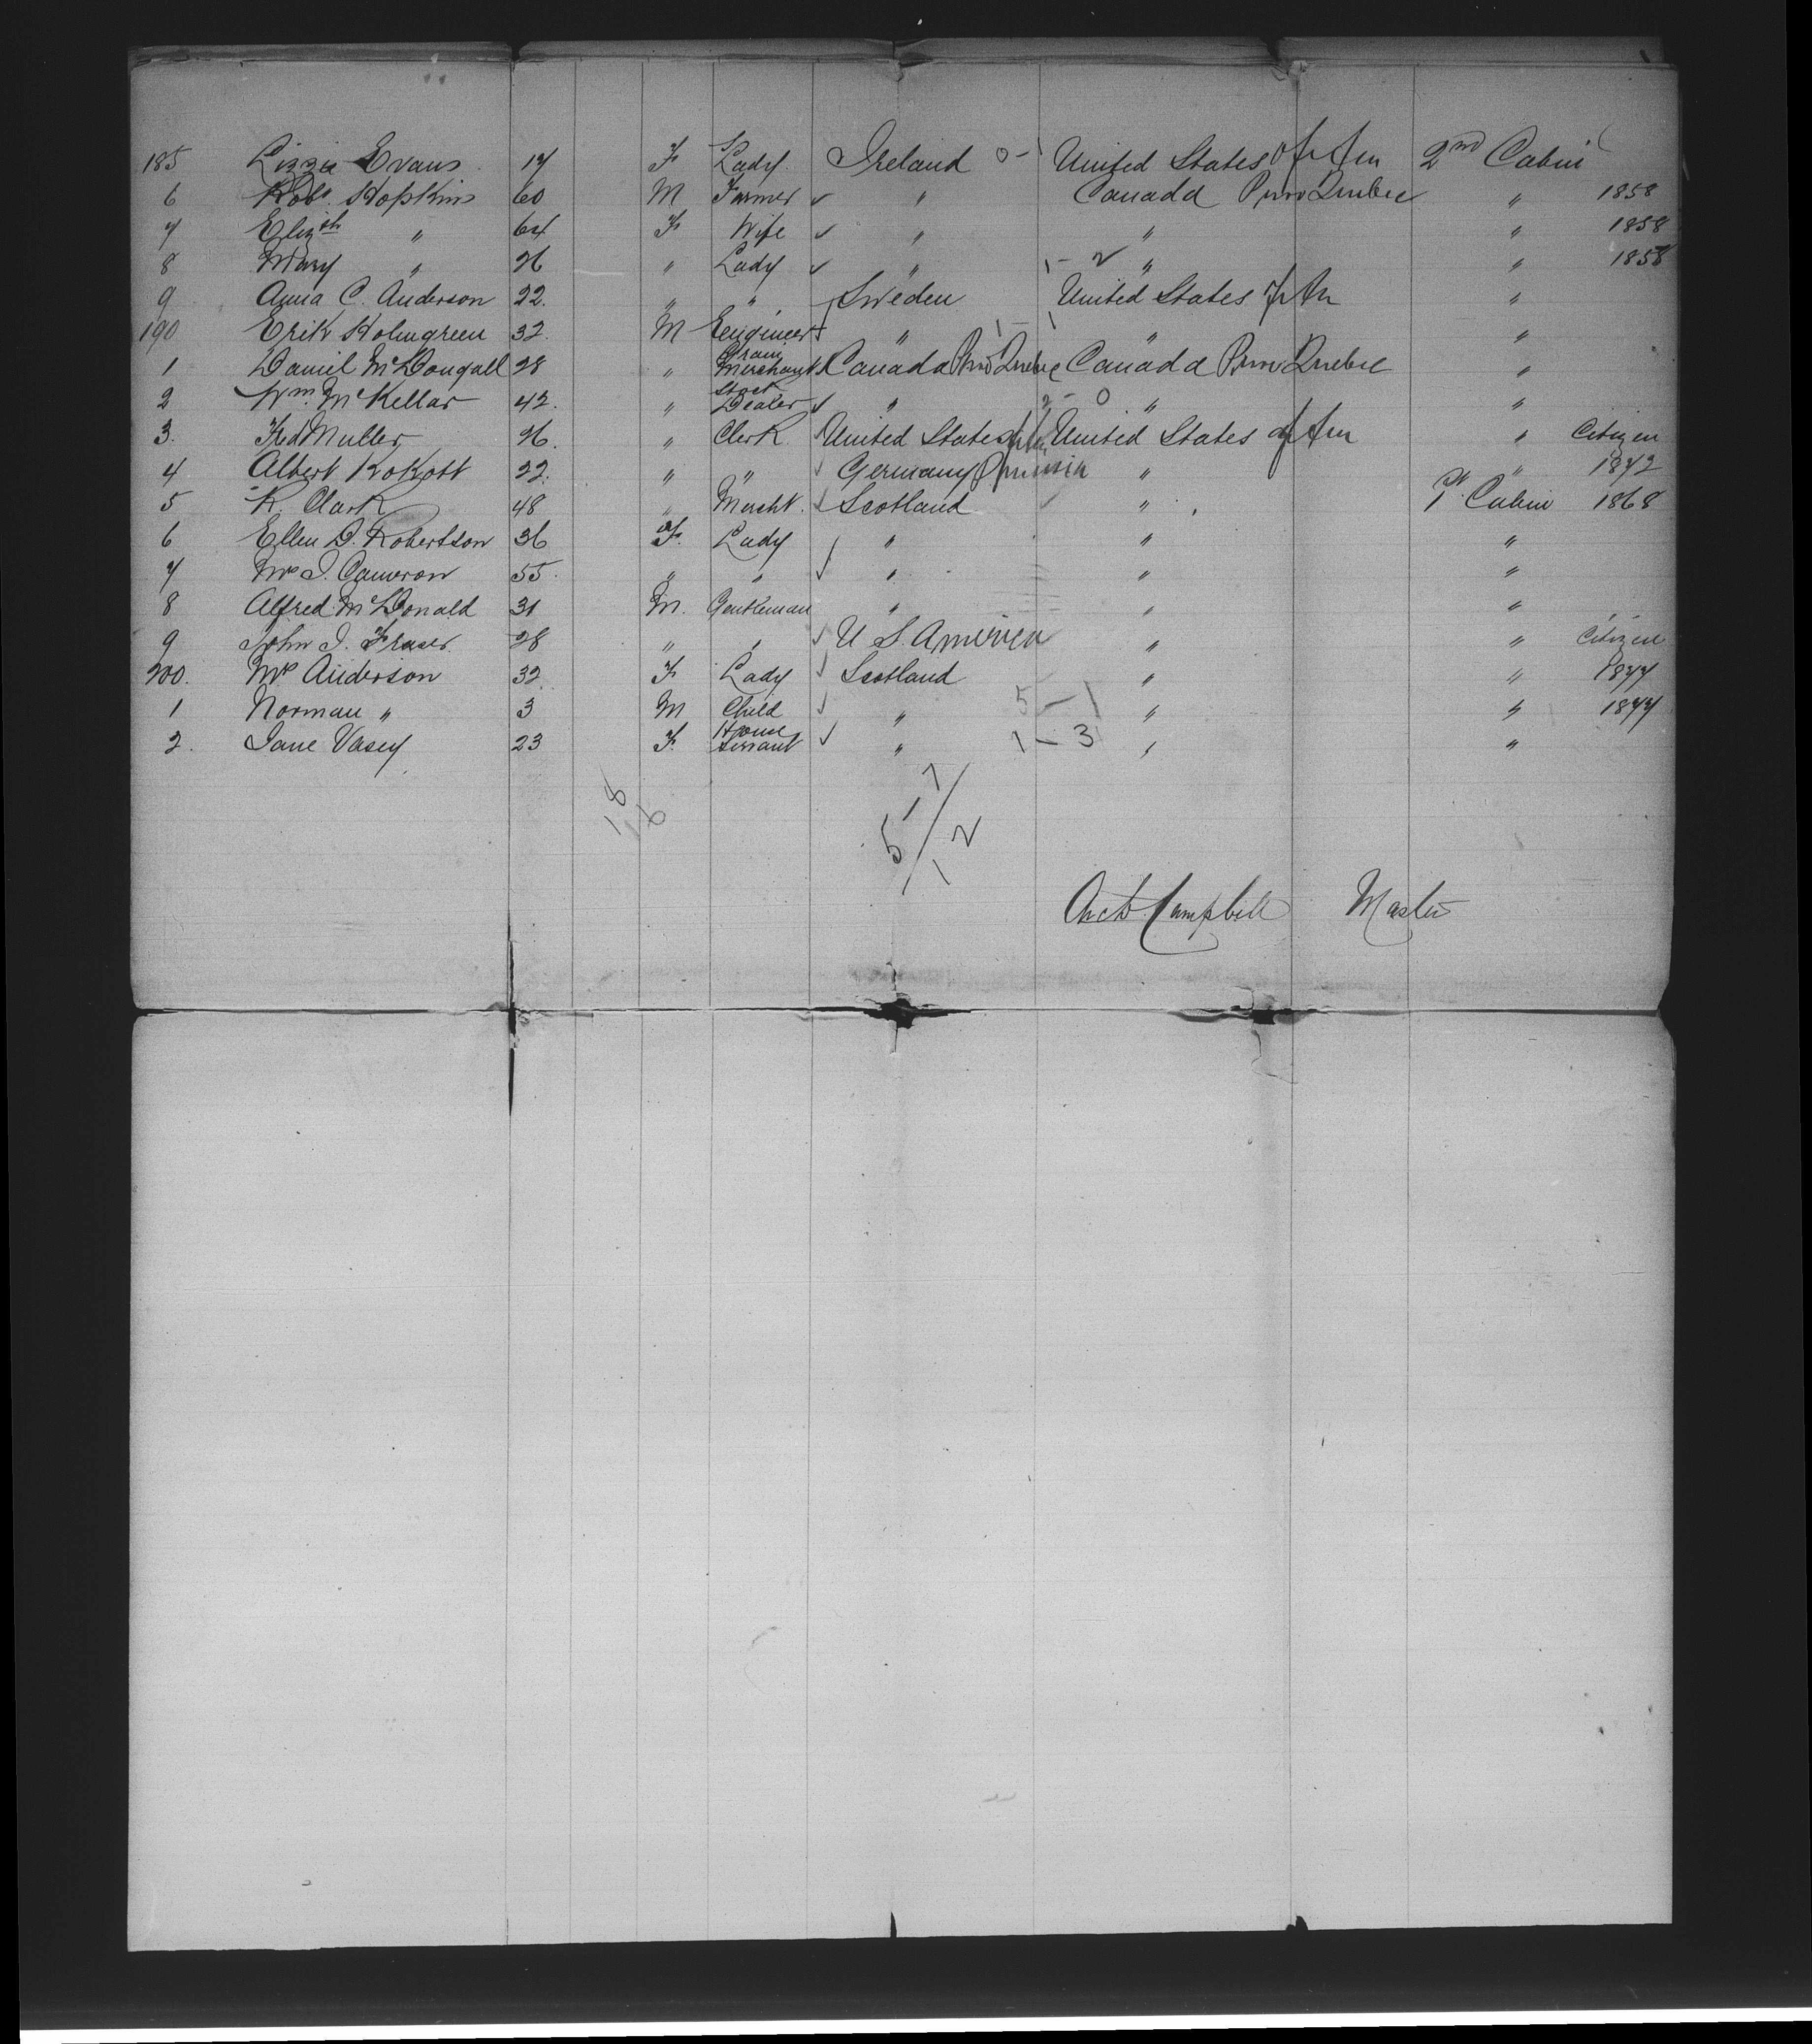 185 Lizzie Evans 17 F Lady Ireland 0-1 United States of Am 2nd Cabin
6 Robt. Hopkins 60 M Farmer " Canada Prov Quebec " 1858
7 Elizth " 64 F Wife " " " 1858
8 Mary " 26 " Lady " 1-2 " " 1858
9 Anna C. Anderson 22 " " Sweden United States of Am "
190 Erik Holmgreen 32 M Engineer " 1-1 " "
1 Daniel McDougall 28 " Grain Merchant Canada Prov Quebec Canada Prov Quebec "
2 Wm. McKellar 42 " Stock Dealer " 2-0 " "
3. Fd Muller 26 " Clerk United States of Am United States of Am " Citizen
4 Albert Kokott 22 " " Germany Prussia " " 1872
5 R. Clark 48 " Mercht. Scotland " 1st Cabin 1868
6 Ellen D. Robertson 36 F. Lady " " "
7 Mrs J. Cameron 55 " " " " "
8 Alfred McDonald 31 M. Gentleman " " "
9 John J. Fraser 28 " " U S. America " " Citizen
200. Mrs Anderson 32 F Lady Scotland " " 1877
1 Norman " 3 M Child " 5-1 " " 1877
2. Jane Vasey 23 F. House Servant " 1-3 " "
18 16
5-7/12
Archd. Campbell Master